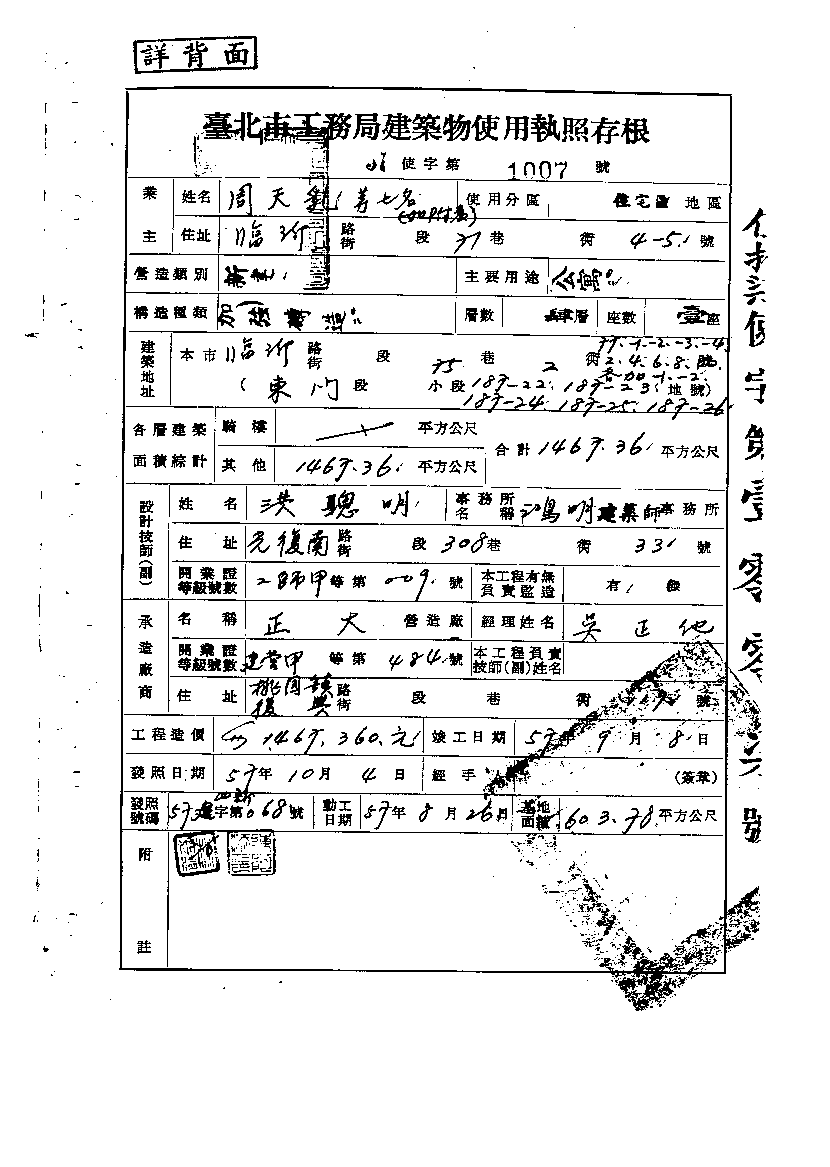 詳背面
臺北市工務局建築物使用執照存根
使字第 1007 號
業主 姓名 周天 等七名 使用分區 住宅區 地區
住址 臨沂 路街 段 71 巷 衖 4-5 號
營造類別 新建 主要用途 公寓
構造種類 加強磚造 層數 肆層 座數 壹座
建築地址 本市 臨沂 路街 段 75 巷 2 衖
2.4.6.8.號
(東門段 小段 187-22. 187-23. 地號)
187-24. 187-25. 187-26.
各層建築面積綜計 騎樓 平方公尺 合計 1467.36 平方公尺
其他 1467.36 平方公尺
設計技師(副) 姓名 洪聰明 事務所名稱 鴻明建築師事務所
住址 光復南 路街 段 308 巷 衖 33 號
開業證等級號數 師甲等第 009 號 本工程有無負責監造 有
承造廠商 名稱 正大 營造廠 經理姓名 吳正
開業證等級號數 建營甲 等第 484 號 本工程負責技師(副)姓名
住址 桃園鎮復興 路街 段 巷 衖 號
工程造價 1,467,360元 竣工日期 57年9月8日
發照日期 57年10月4日 經手人 (簽章)
發照號碼 57 建 字第 068 號 動工日期 57年8月26日 基地面積 603.78 平方公尺
附註
使字第壹零零 號